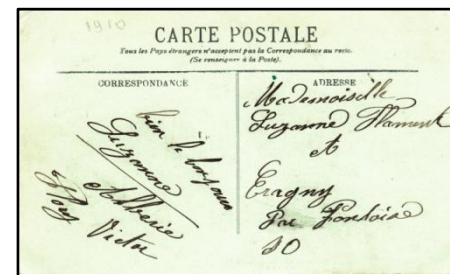 1910
CARTE POSTALE
Tous les Pays étrangers n'acceptent pas la Correspondance au recto.
(Se renseigner à la Poste).
CORRESPONDANCE
bien le bonjour
Suzanne
Victor
ADRESSE
Mademoiselle
Suzanne Flament
Eragny
Par Pontoise
SO